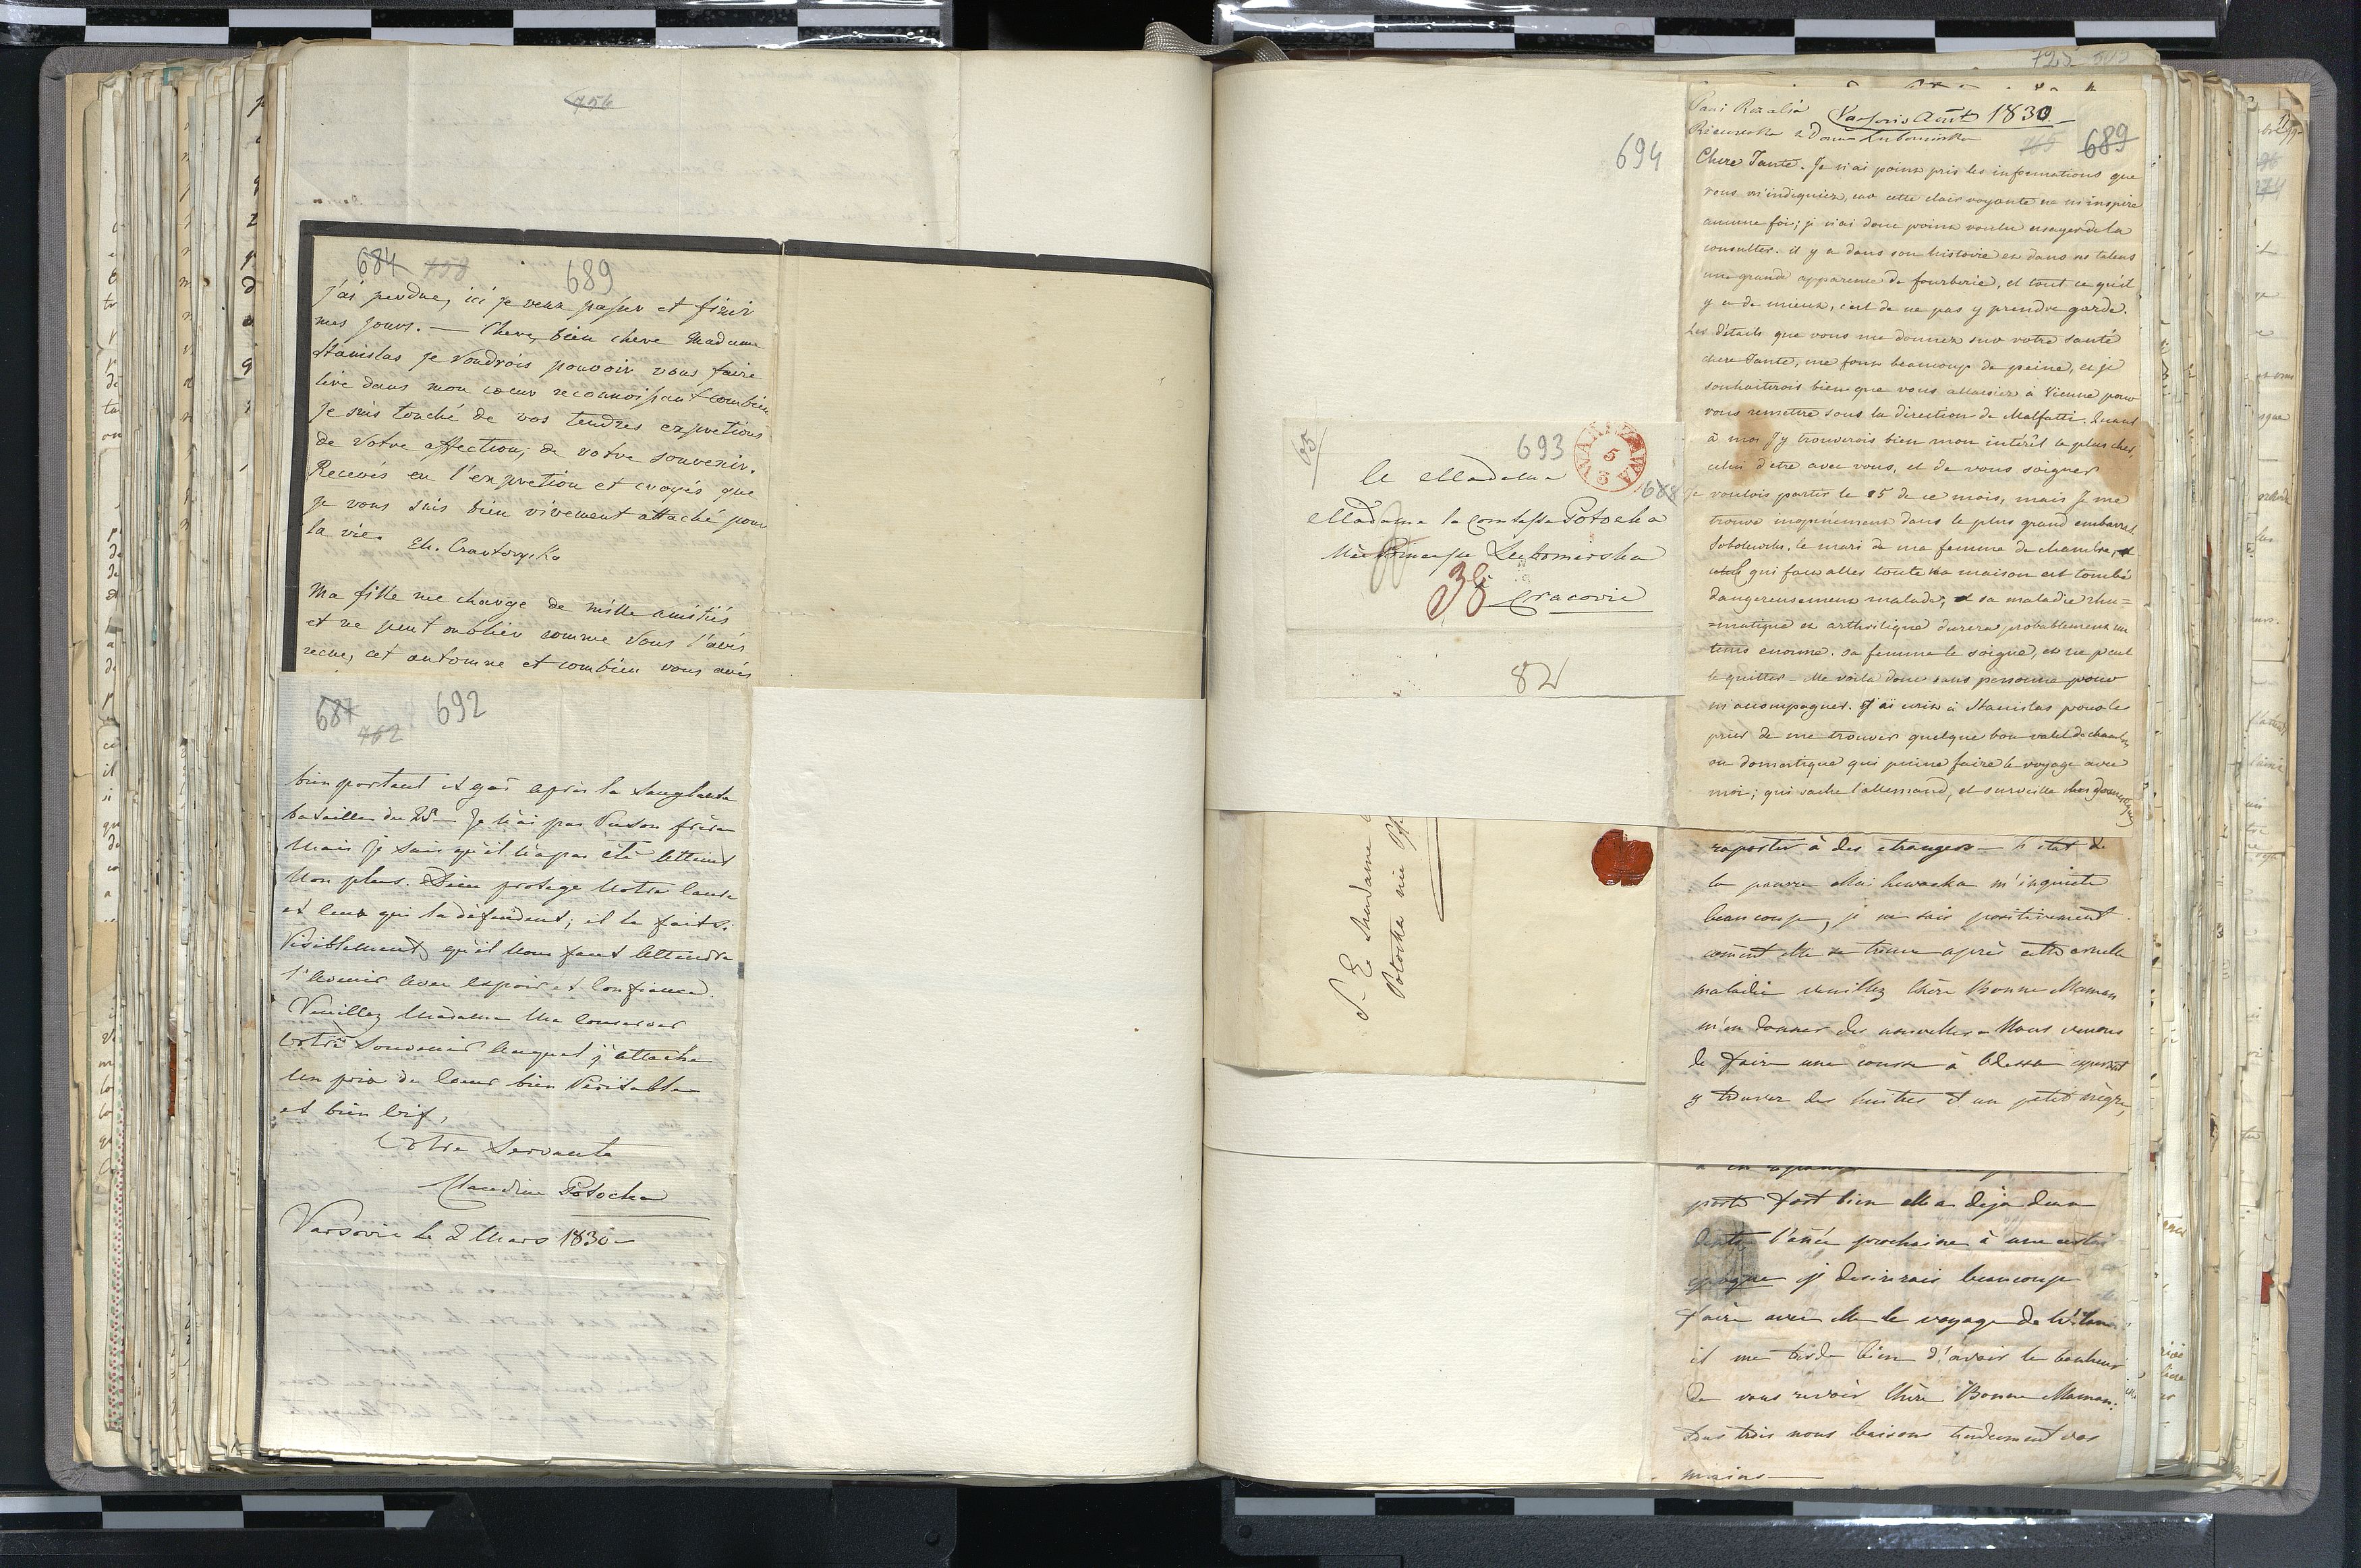 756
684 758 689
j'ai perdue, ici je veux passer et finir
mes jours. — Chere, bien chere Madame
Stanislas je voudrois pouvoir vous faire
lire dans mon coeur reconnoissant combien
je suis touché de vos tendres expretions
de votre affection, de votre souvenir.
Recevés en l'expretion et croyés que
je vous suis bien vivement attaché pour
la vie.
Ma fille me charge de mille amitiés
et ne peut oublier comme vous l'avés
recue, cet automne et combien vous avés
687 762 692
bien portant et gai après la sanglante
bataille du 25 — Je n'ai pas vu son frère
mais je sais qu'il n'a pas été atteint
non plus. Dieu protege notre cause
et ceux qui la défendent, il le fait si
visiblement, qu'il nous faut attendre
l'avenir avec espoir et confiance.
Veuillez Madame me conserver
votre souvenir auquel j'attache
un prix de coeur bien véritable
et bien vif,
Votre Servante
Claudine Potocka
Varsovie le 2 Mars 1830
725
694
693
WARSZAWA
5
6
688
Madame la Comtesse Potocka
Née Princesse Lubomirska
38
Cracovie
82
S. E. Madame
Potocka née
Pani Rozalia Varsovie Août 1830
Rzewuska z Domu Lubomirska
765 689
Chere Tante. Je n'ai point pris les informations que
vous m'indiquiez, car cette clair voyante ne m'inspire
aucune foi; je n'ai donc point voulu essayer de la
consulter. il y a dans son histoire et dans ses talens
une grande apparence de fourberie, et tout ce qu'il
y a de mieux, c'est de ne pas y prendre garde.
Les détails que vous me donnez sur votre santé
chere Tante, me font beaucoup de peine, et je
souhaiterois bien que vous allassiez à Vienne pour
vous remettre sous la direction de Malfatti. Quant
à moi j'y trouverois bien mon intérêt le plus cher,
celui d'etre avec vous, et de vous soigner
Je voulois partir le 25 de ce mois, mais je me
trouve inopinément dans le plus grand embarras.
Sobolewski, le mari de ma femme de chambre,
qui fait aller toute ma maison est tombé
dangereusement malade, sa maladie rhu=
=matique et arthritique durera probablement un
tems enorme. sa femme le soigne, et ne peut
le quitter — Me voila donc sans personne pour
m'accompagner. J'ai ecrit à Stanislas pour le
prier de me trouver quelque bon valet de chambre
ou domestique qui puisse faire le voyage avec
moi; qui sache l'allemand, et surveille
raporter à des etrangers — L'etat de
la pauvre m'inquiete
beaucoup, je ne sais positivement
coment elle se trouve après cette cruelle
maladie veuillez Chère Bonne Maman
m'en donner des nouvelles — Nous venons
de faire une course à Odessa esperant
y trouver des huitres et un petit nègre,
porte fort bien elle a déja
l'anée prochaine à une certaine
epoque je desirerais beaucoup
faire avec elle le voyage de
il me tarde bien d'avoir le bonheur
de vous revoir Chère Bonne Maman.
Tous trois nous baisons tendrement vos
mains —